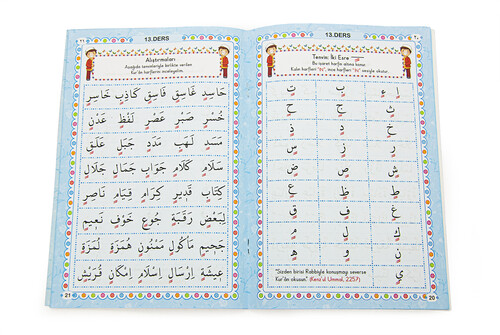 13.DERS
Tenvin: İki Esre
Bu işaret harfin altına konur.
Kalın harfleri "ın", ince harfleri "in" sesiyle okutur.
اٍ ءٍ بٍ تٍ
ثٍ جٍ حٍ
خٍ دٍ ذٍ
رٍ زٍ سٍ
شٍ صٍ ضٍ
طٍ ظٍ عٍ
غٍ فٍ قٍ
كٍ لٍ مٍ
نٍ وٍ هٍ
يٍ
"Sizden birisi Rabbiyle konuşmayı severse
Kur'ân okusun." (Kenz'ül Ummal, 2257)
20
13.DERS
Alıştırmaları
Aşağıda temsilleriyle birlikte verilen
Kur'ân harflerini inceleyelim.
حَاسِدٍ غَاسِقٍ فَاسِقٍ كَاذِبٍ خَاسِرٍ
خُسْرٍ صَبْرٍ عَصْرٍ لَفْظٍ عَدْنٍ
مَسَدٍ لَهَبٍ مَدَدٍ جَبَلٍ عَلَقٍ
سَلَامٍ كَلَامٍ جَوَابٍ جَمَالٍ جَلَالٍ
كِتَابٍ قَدِيرٍ كِرَامٍ قِيَامٍ نَاصِرٍ
لِبَعْضٍ رَقَبَةٍ جُوعٍ خَوْفٍ نَعِيمٍ
جَحِيمٍ مَأْكُولٍ مَمْنُونٍ هُمَزَةٍ لُمَزَةٍ
عِيشَةٍ اِرْسَالٍ اِسْلَامٍ اِمْكَانٍ قُرَيْشٍ
21